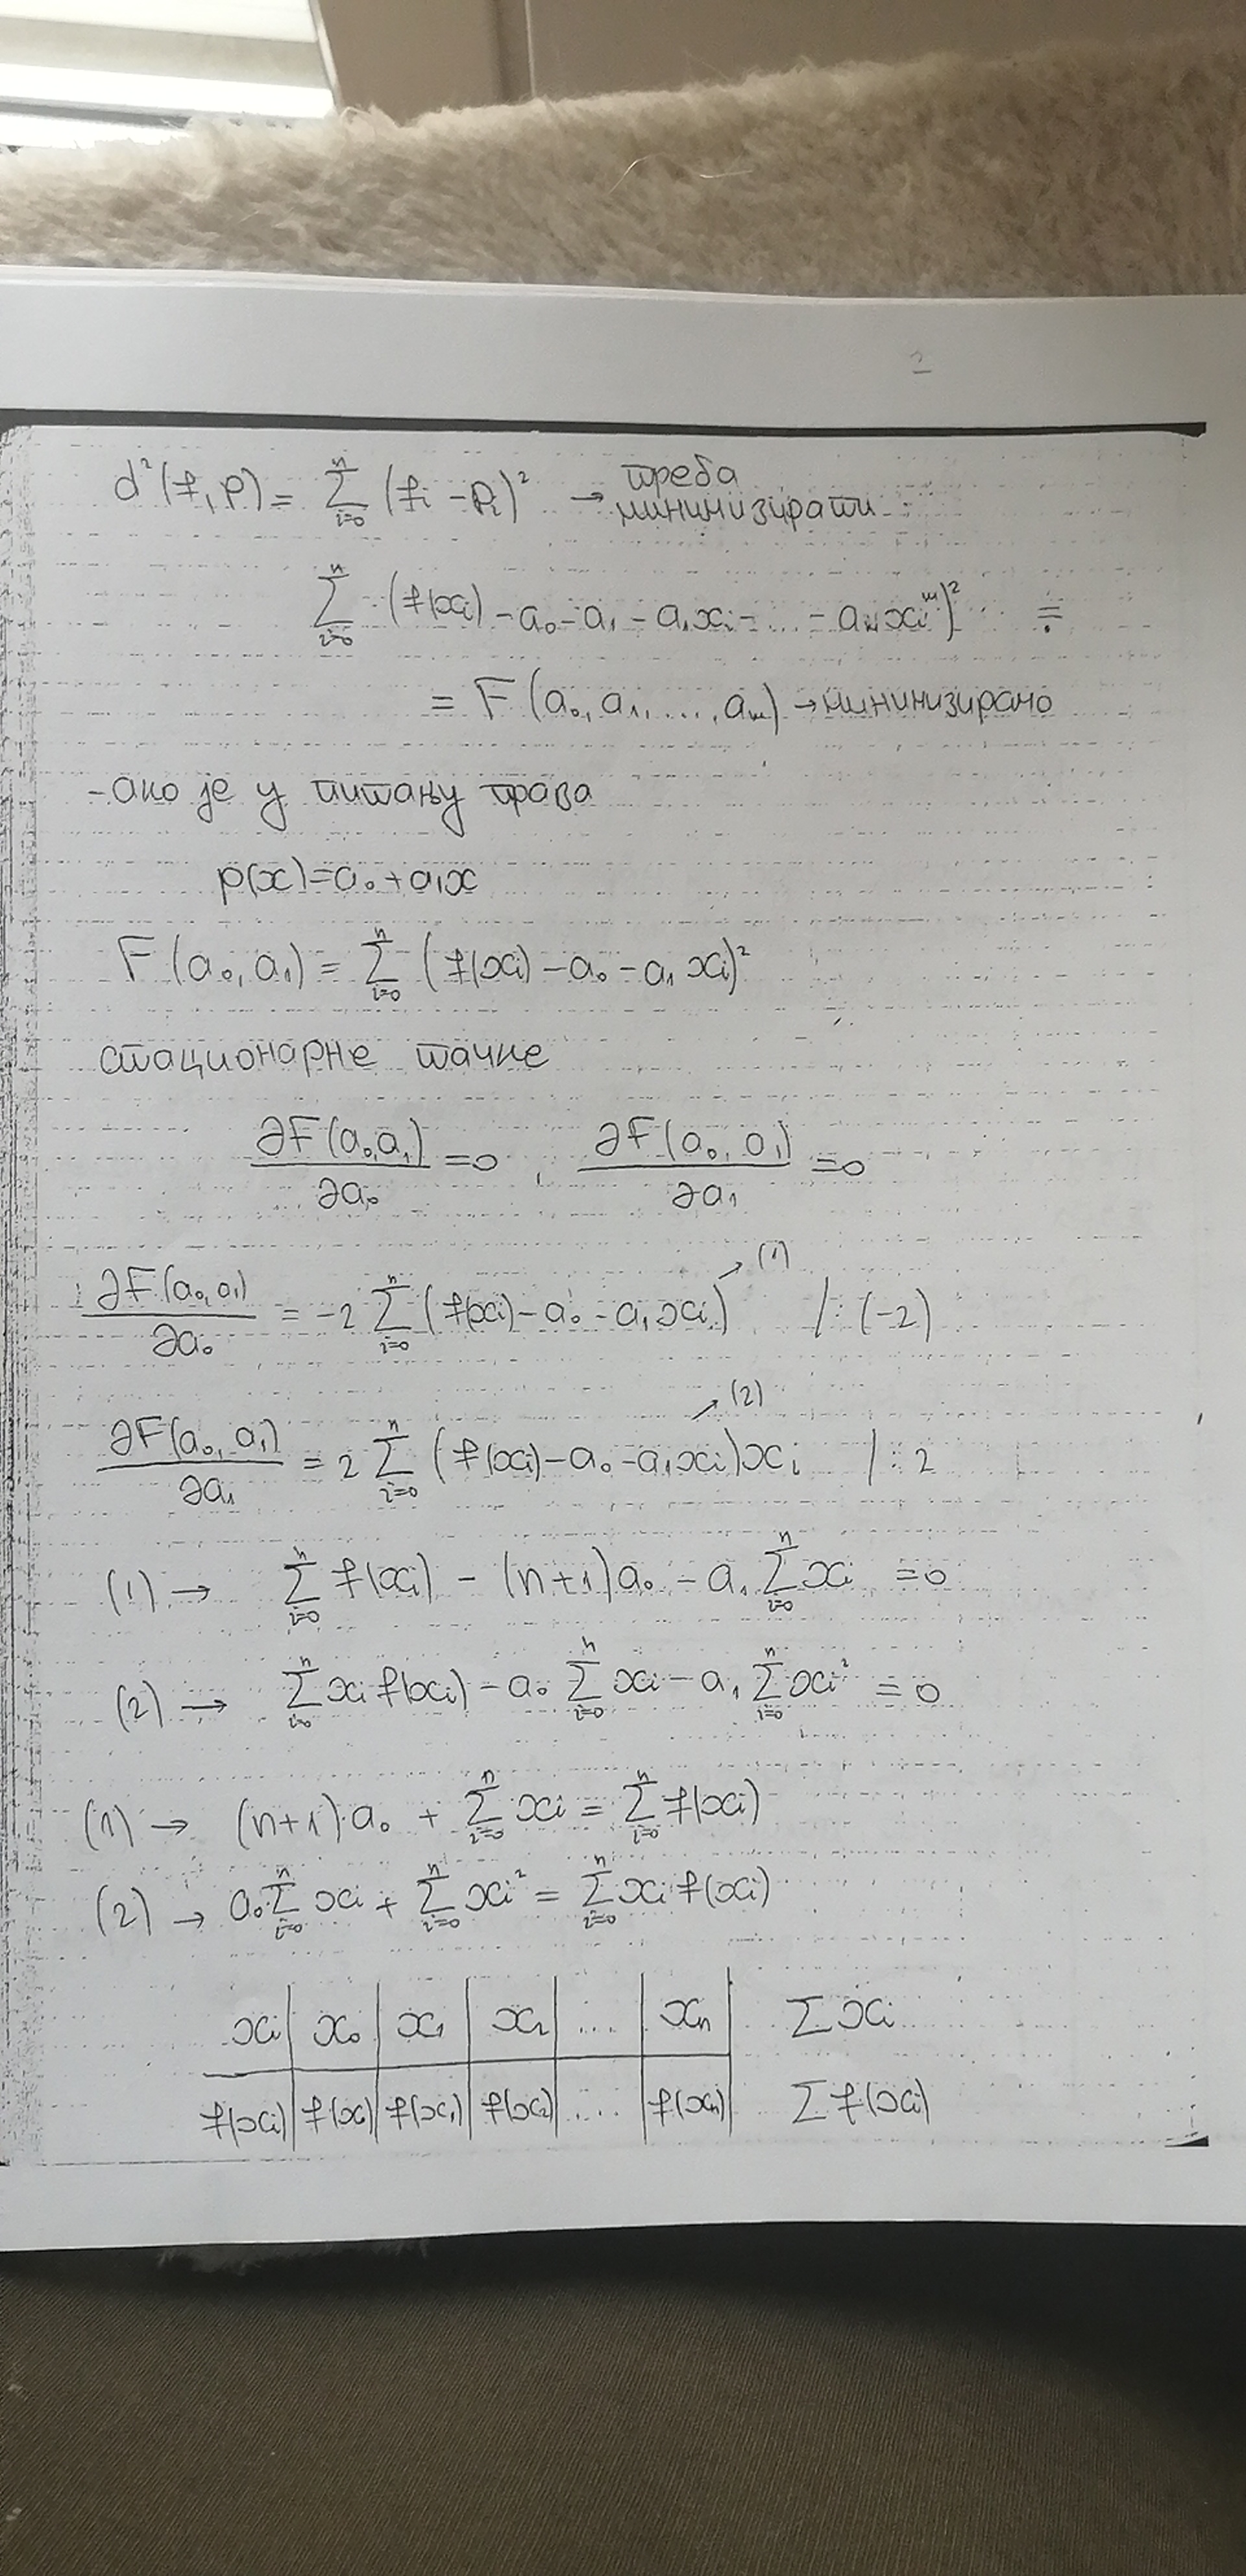 2
d²(f, p) = ∑ᵢ₌₀ⁿ (fᵢ - pᵢ)² → треба минимизирати
∑ᵢ₌₀ⁿ (f(xᵢ) - a₀ - a₁ - a₁xᵢ - ... - aₘxᵢᵐ)² =
= F(a₀, a₁, ..., aₘ) → минимизирамо
- ако је у питању права
p(x) = a₀ + a₁x
F(a₀, a₁) = ∑ᵢ₌₀ⁿ (f(xᵢ) - a₀ - a₁xᵢ)²
стационарне тачке
∂F(a₀, a₁)/∂a₀ = 0, ∂F(a₀, a₁)/∂a₁ = 0
∂F(a₀, a₁)/∂a₀ = -2 ∑ᵢ₌₀ⁿ (f(xᵢ) - a₀ - a₁xᵢ) → (1) /: (-2)
∂F(a₀, a₁)/∂a₁ = 2 ∑ᵢ₌₀ⁿ (f(xᵢ) - a₀ - a₁xᵢ)xᵢ → (2) /: 2
(1) → ∑ᵢ₌₀ⁿ f(xᵢ) - (n+1)a₀ - a₁ ∑ᵢ₌₀ⁿ xᵢ = 0
(2) → ∑ᵢ₌₀ⁿ xᵢ f(xᵢ) - a₀ ∑ᵢ₌₀ⁿ xᵢ - a₁ ∑ᵢ₌₀ⁿ xᵢ² = 0
(1) → (n+1)·a₀ + ∑ᵢ₌₀ⁿ xᵢ = ∑ᵢ₌₀ⁿ f(xᵢ)
(2) → a₀ ∑ᵢ₌₀ⁿ xᵢ + ∑ᵢ₌₀ⁿ xᵢ² = ∑ᵢ₌₀ⁿ xᵢ f(xᵢ)
xᵢ | x₀ | x₁ | x₂ | ... | xₙ | ∑xᵢ
f(xᵢ) | f(x₀) | f(x₁) | f(x₂) | ... | f(xₙ) | ∑f(xᵢ)